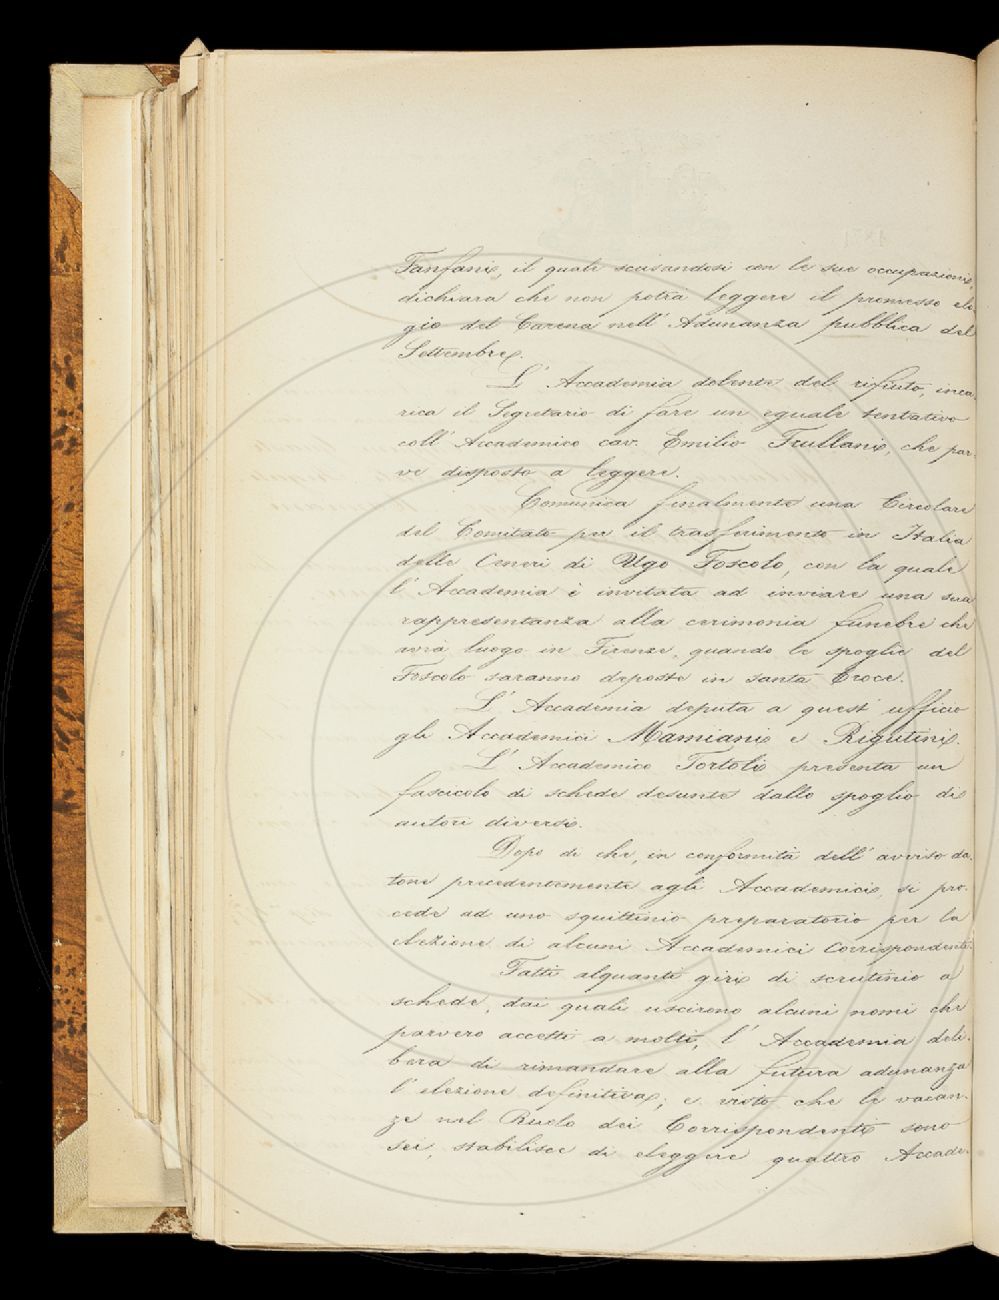 Fanfani, il quale scusandosi con le sue occupazioni,
dichiara che non potrà leggere il promesso elo-
gio del Carena nell' Adunanza pubblica del
Settembre.
L' Accademia dolente del rifiuto, inca-
rica il Segretario di fare un eguale tentativo
coll' Accademico cav. Emilio Frullani, che par-
ve disposto a leggere.
Comunica finalmente una Circolare
del Comitato per il trasferimento in Italia
delle Ceneri di Ugo Foscolo, con la quale
l' Accademia è invitata ad inviare una sua
rappresentanza alla cerimonia funebre che
avrà luogo in Firenze, quando le spoglie del
Foscolo saranno deposte in Santa Croce.
L' Accademia deputa a quest' ufficio
gli Accademici Mamiani e Rigutini.
L' Accademico Tortoli presenta un
fascicolo di schede desunte dallo spoglio di
autori diversi.
Dopo di che, in conformità dell' avviso da-
tone precedentemente agli Accademici, si pro-
cede ad uno squittinio preparatorio per la
elezione di alcuni Accademici Corrispondenti.
Fatti alquanti giri di scrutinio a
schede, dai quali uscirono alcuni nomi che
parvero accetti a molti, l' Accademia deli-
bera di rimandare alla futura adunanza
l' elezione definitiva; e visto che le vacan-
ze nel Ruolo dei Corrispondenti sono
sei, stabilisce di eleggere quattro Accade-